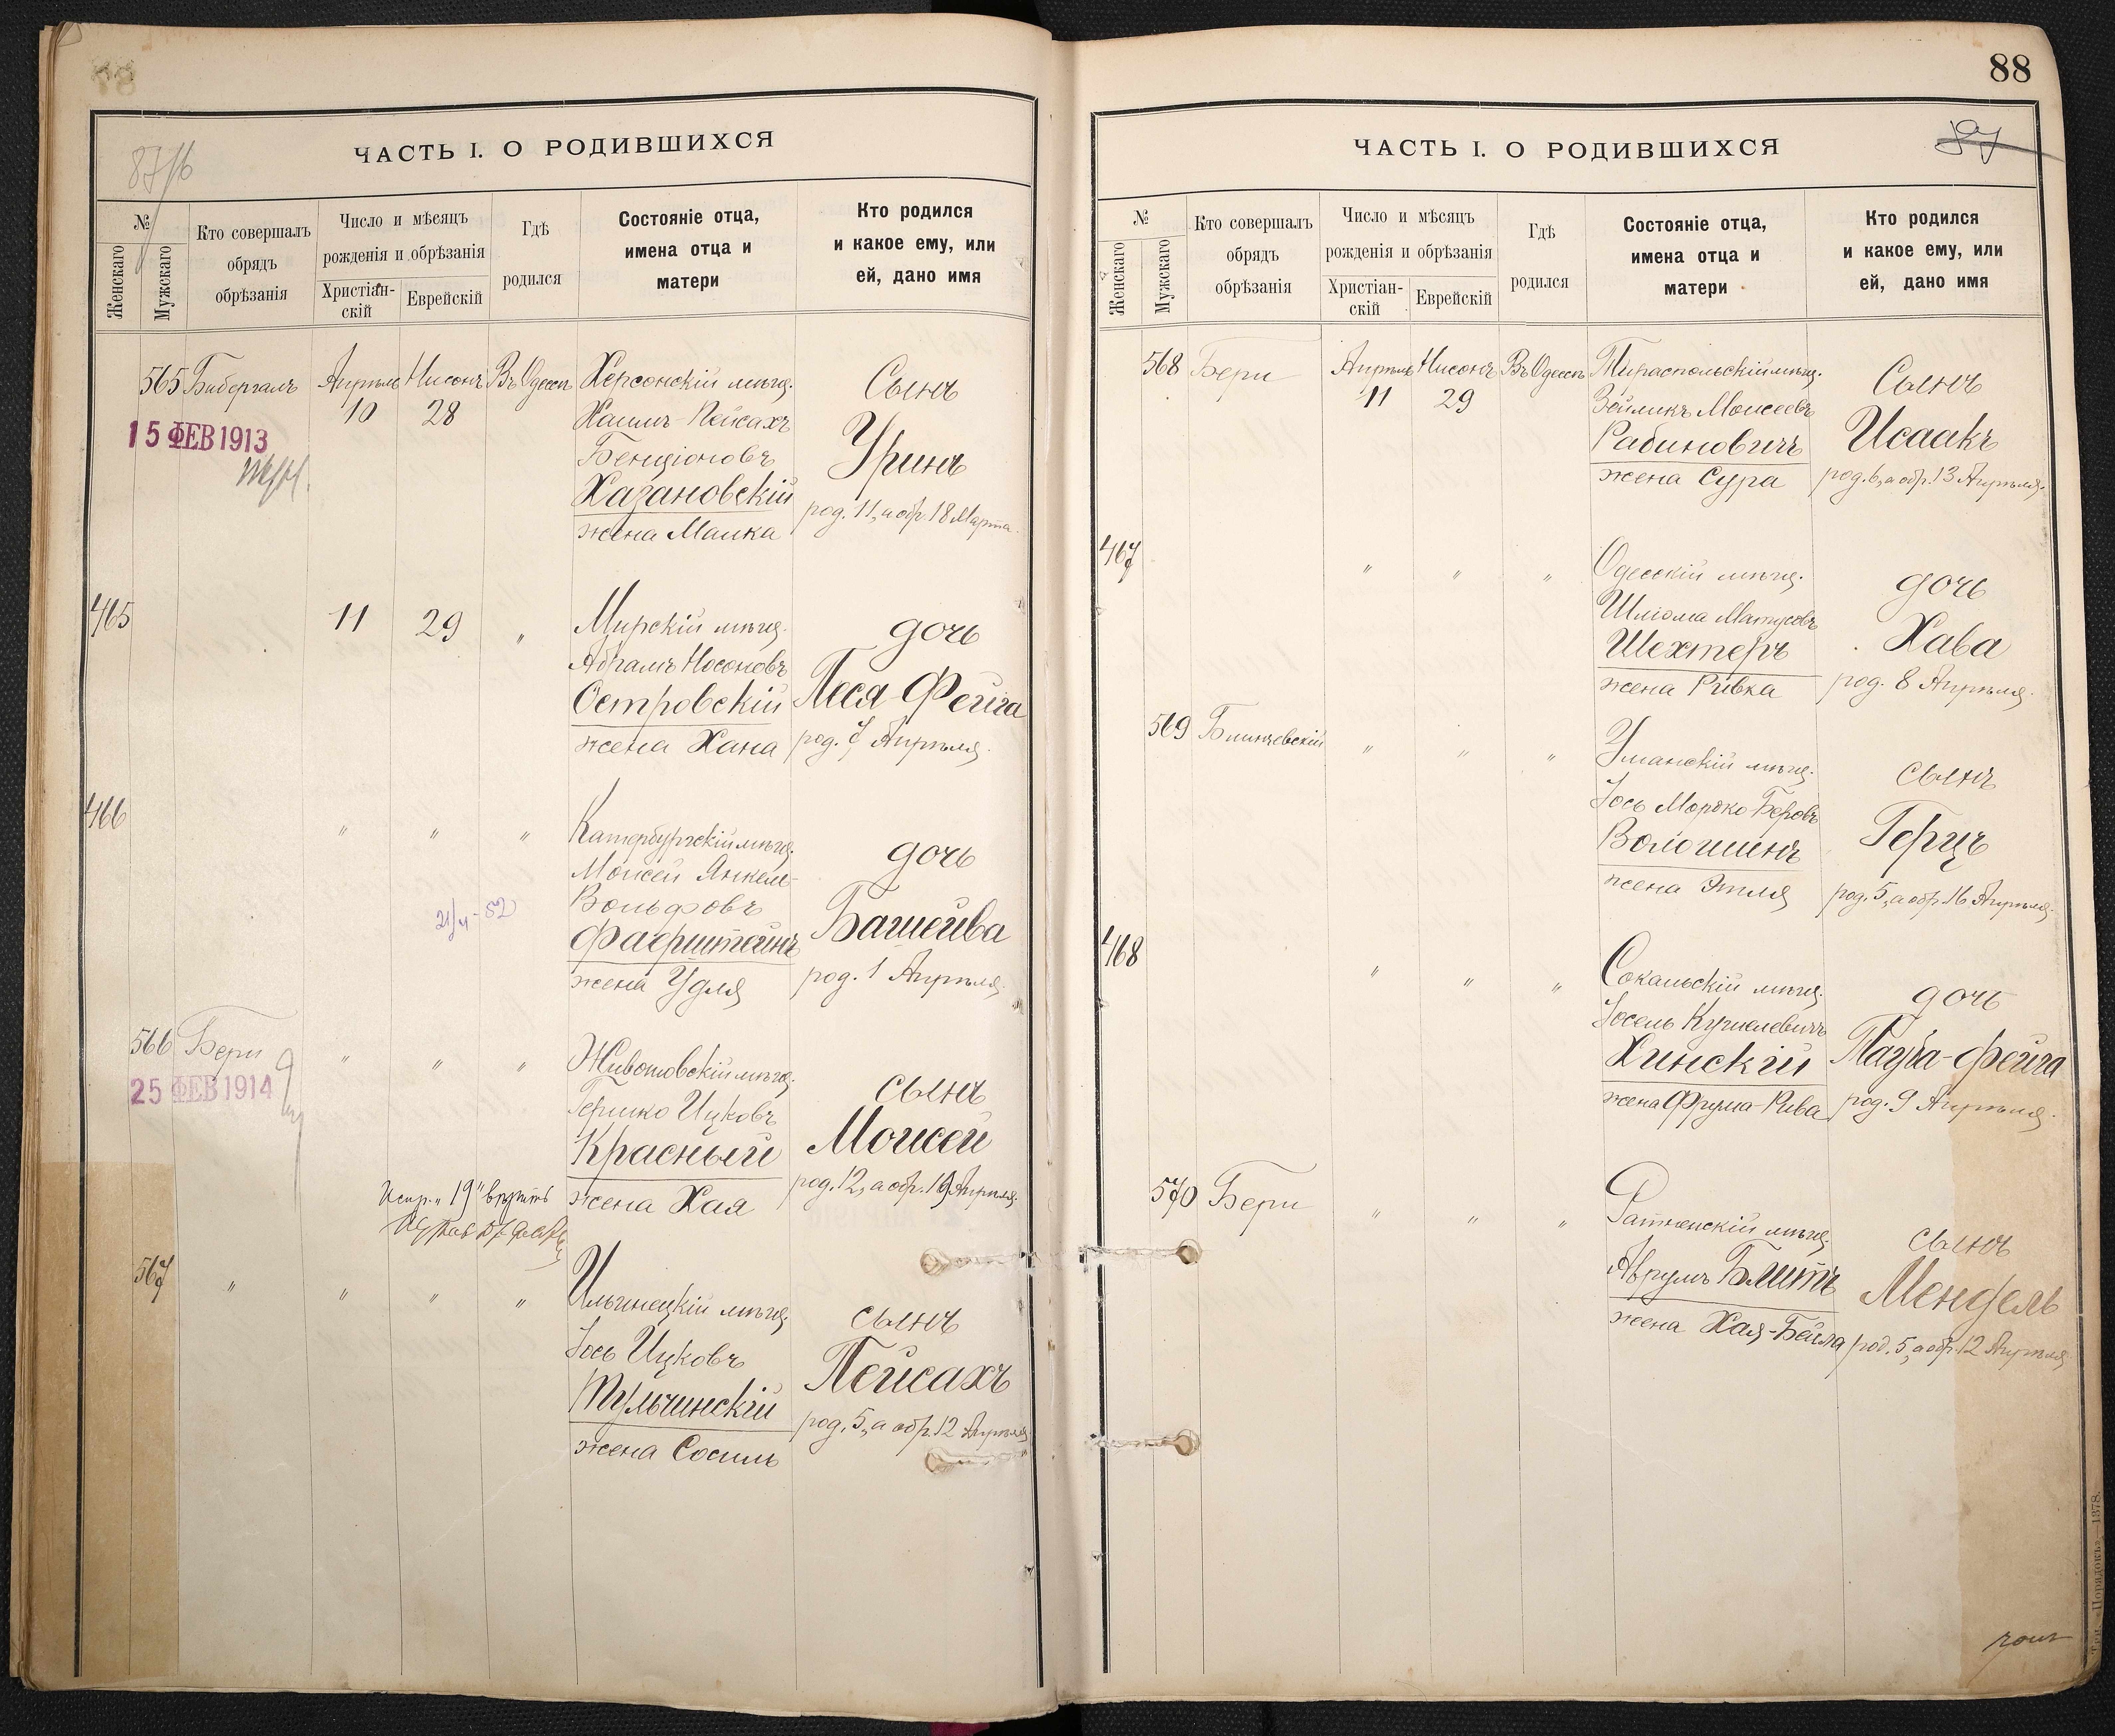 87/б
ЧАСТЬ I. О РОДИВШИХСЯ
№
Женскаго
Мужскаго
Кто совершалъ
обрядъ
обрѣзанія
Число и мѣсяцъ
рожденія и обрѣзанія
Христіан-
скій
Еврейскій
Гдѣ
родился
Состояніе отца,
имена отца и
матери
Кто родился
и какое ему, или
ей, дано имя
565 Бибергалъ Апрѣль 10 Нисонъ 28 Въ Одессѣ
15 ФЕВ 1913
Херсонскій мѣщ.
Хаимъ-Пейсахъ
Бенціоновъ
Хазановскій
жена Малка
Сынъ
Уринъ
род. 11, а обр. 18 Марта.
465 11 29 „
Мирскій мѣщ.
Абрамъ Носоновъ
Островскій
жена Хана
дочь
Песя-Фейга
род. 7 Апрѣля.
466 „ „ „
Катербургскій мѣщ.
Моисей Янкель-
Вольфовъ
жена Удля
дочь
Башейва
род. 1 Апрѣля.
21/4-52
566 Бери „ „ „
25 ФЕВ 1914
Животовскій мѣщ.
Гершко Ицковъ
Красный
жена Хая
сынъ
Моисей
род. 12, а обр. 19 Апрѣля.
Испр. „19" вѣрить
567 „ „ „ „
Ильинецкій мѣщ.
Іось Ицковъ
Тульчинскій
жена Сосиль
сынъ
Пейсахъ
род. 5, а обр. 12 Апрѣля
88
87
ЧАСТЬ I. О РОДИВШИХСЯ
№
Женскаго
Мужскаго
Кто совершалъ
обрядъ
обрѣзанія
Число и мѣсяцъ
рожденія и обрѣзанія
Христіан-
скій
Еврейскій
Гдѣ
родился
Состояніе отца,
имена отца и
матери
Кто родился
и какое ему, или
ей, дано имя
568 Бери Апрѣль 11 Нисонъ 29 Въ Одессѣ
Тираспольскій мѣщ.
Зейликъ Моисеевъ
Рабиновичъ
жена Сура
Сынъ
Исаакъ
род. 6, а обр. 13 Апрѣля.
467 „ „ „
Одесскій мѣщ.
Шліома Матусовъ
Шехтеръ
жена Ривка
дочь
Хава
род. 8 Апрѣля.
569 Блинчевскій „ „ „
Уманскій мѣщ.
Іось Мордко Беровъ
Волошинъ
жена Этля
сынъ
Герцъ
род. 5, а обр. 16 Апрѣля.
468 „ „ „
Сокальскій мѣщ.
Іосель Кушелевичъ
Хинскій
жена Фрума-Рива
дочь
Тауба-Фейга
род. 9 Апрѣля.
570 Бери „ „ „
Ратненскій мѣщ.
Аврумъ Блитъ
жена Хая-Бейла
сынъ
Мендель
род. 5, а обр. 12 Апрѣля
Тип. „Порядокъ".—1378.